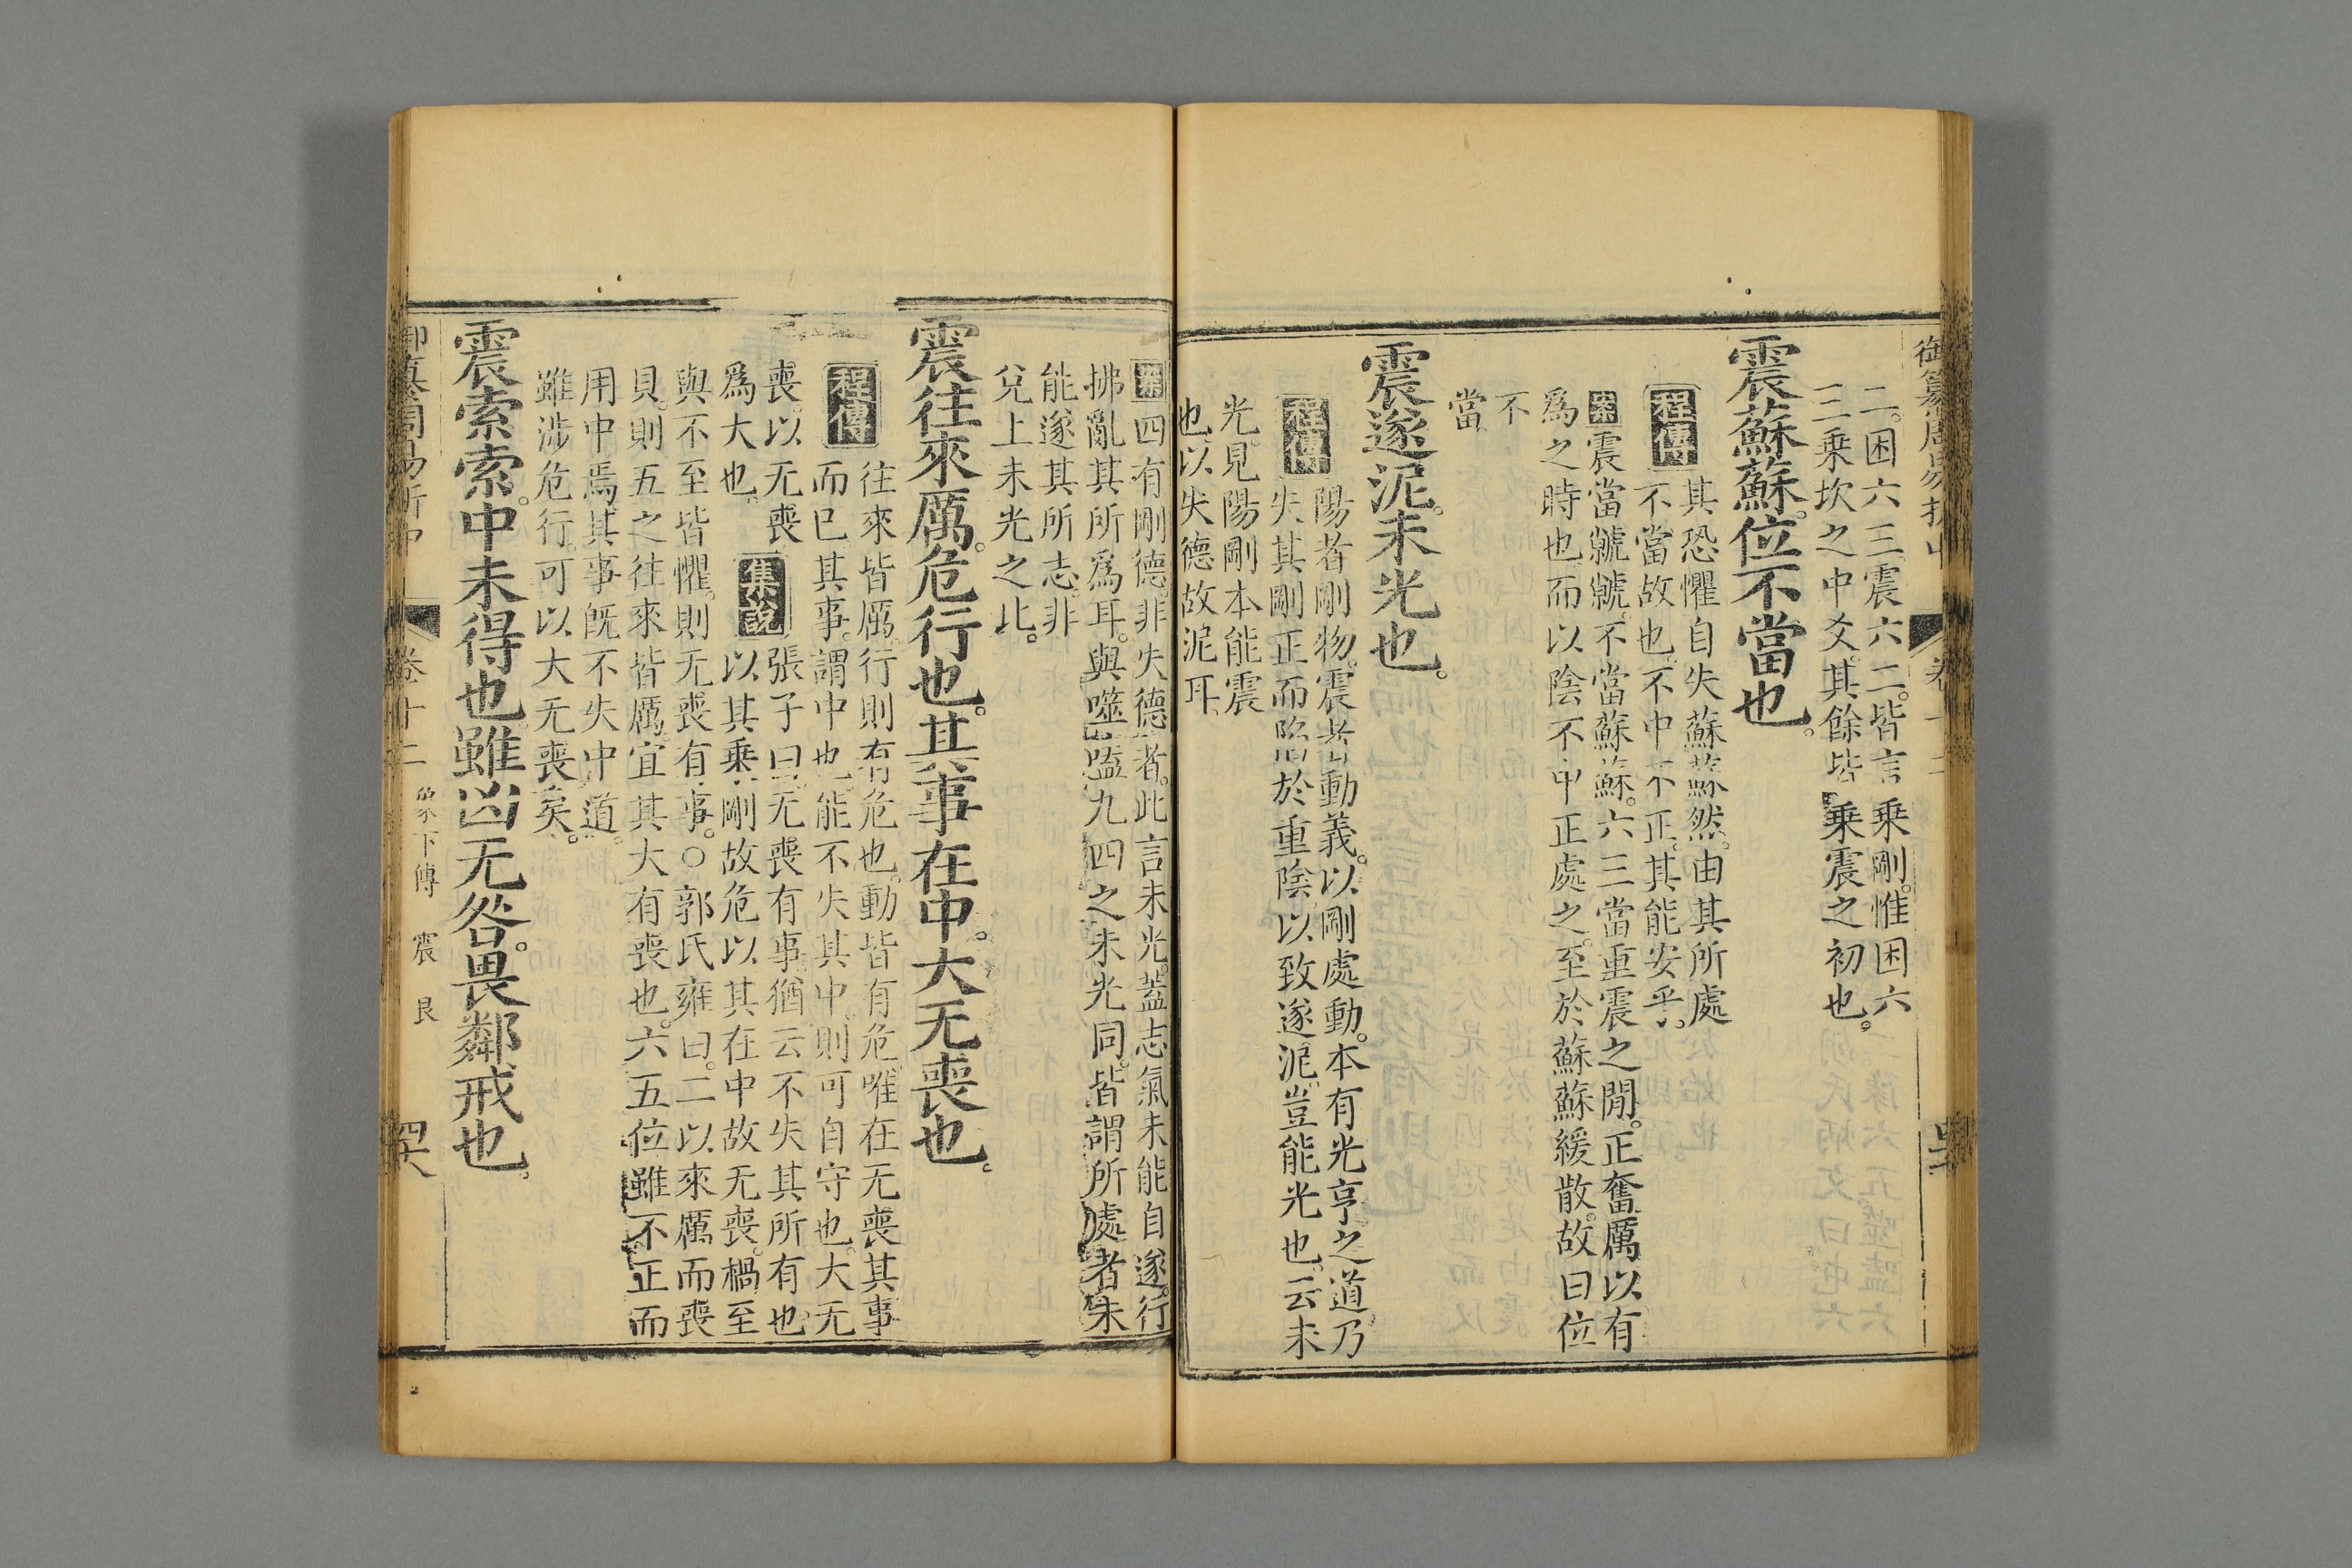 二。困六三震六二。皆言乘剛。惟困六
三乘坎之中爻。其餘皆乘震之初也。
震蘇蘇。位不當也。
程傳
其恐懼自失蘇蘇然。由其所處
不當故也。不中不正。其能安乎。
案震當虩虩。不當蘇蘇。六三當重震之閒。正奮厲以有
爲之時也。而以陰不中正處之。至於蘇蘇緩散。故曰位
不
當
震遂泥。未光也。
程傳
陽者剛物。震者動義。以剛處動。本有光亨之道。乃
失其剛正而陷於重陰。以致遂泥。豈能光也。云未
光。見陽剛本能震
也。以失德故泥耳。
案四有剛德。非失德者。此言未光。蓋志氣未能自遂。行
拂亂其所爲耳。與噬嗑九四之未光同。皆謂所處者未
能遂其所志。非
兌上未光之比。
震往來厲。危行也。其事在中。大无喪也。
程傳
往來皆厲。行則有危也。動皆有危。唯在无喪其事
而已。其事。謂中也。能不失其中。則可自守也。大无
喪。以无喪
爲大也。
集說
張子曰。无喪有事。猶云不失其所有也。
以其乘剛故危。以其在中故无喪。禍至
與不至皆懼。則无喪有事。○郭氏雍曰。二以來厲而喪
貝。則五之往來皆厲。宜其大有喪也。六五位雖不正而
用中焉。其事既不失中道。
雖涉危行。可以大无喪矣。
震索索。中未得也。雖凶无咎。畏鄰戒也。
御纂周易折中
卷十二
象下傳
震
艮
四十八